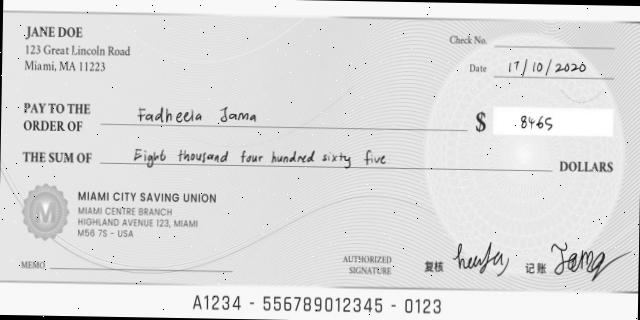 JANE DOE
123 Great Lincoln Road
Miami, MA 11223
Check No.
Date 17/10/2020
PAY TO THE
ORDER OF Fadheela Jama
$ 8465
THE SUM OF Eight thousand four hundred sixty five DOLLARS
MIAMI CITY SAVING UNION
MIAMI CENTRE BRANCH
HIGHLAND AVENUE 123, MIAMI
M56 7S - USA
M
MEMO
AUTHORIZED
SIGNATURE
复核 记账
A1234 - 556789012345 - 0123